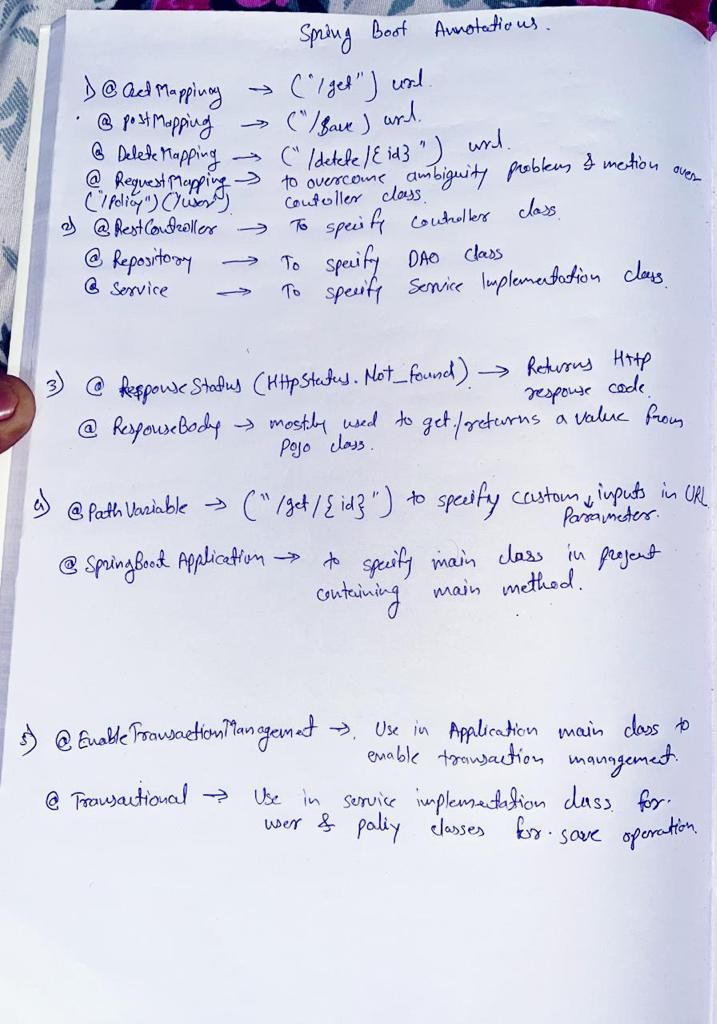 Spring Boot Annotations.
1) @ GetMapping → ("/get") url.
@ postMapping → ("/save) url.
@ DeleteMapping → ("/delete/{id}") url.
@ RequestMapping → to overcome ambiguity problem & mention over
("/policy") ("/user") controller class.
2) @ RestController → To specify controller class.
@ Repository → To specify DAO class
@ Service → To specify Service Implementation class.
3) @ ResponseStatus (HttpStatus.Not_found) → Returns Http
response code.
@ ResponseBody → mostly used to get/returns a value from
Pojo class.
4) @ PathVariable → ("/get/{id}") to specify custom inputs in URL
↓ Parameter.
@ SpringBoot Application → to specify main class in project
containing main method.
5) @ EnableTransactionManagement →. Use in Application main class to
enable transaction management.
@ Transactional → Use in service implementation class for.
user & policy classes for. save operation.